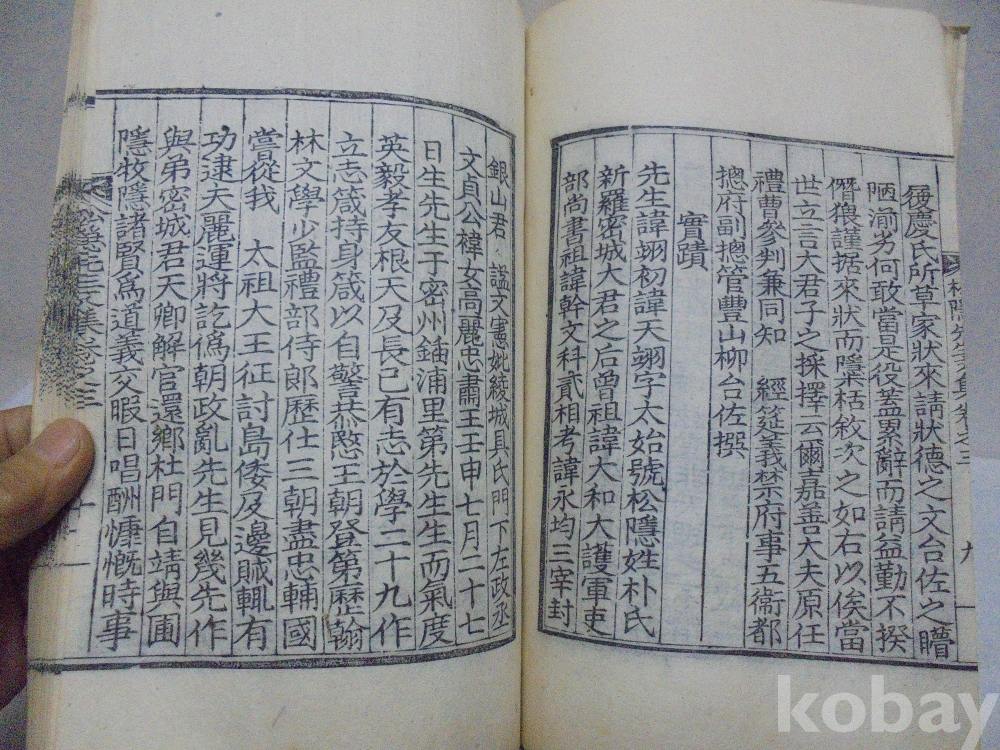 履慶氏所草家狀來請狀德之文台佐之瞻
陋渝劣何敢當是役蓋累辭而請益勤不揆
僭猥謹据來狀而隱栝敘次之如右以俟當
世立言大君子之採擇云爾嘉善大夫原任
禮曹參判兼同知 經筵義禁府事五衛都
摠府副摠管豐山柳台佐撰
實蹟
先生諱翊初諱天翊字太始號松隱姓朴氏
新羅密城大君之后曾祖諱大和大護軍吏
部尚書祖諱幹文科貳相考諱永均三宰封
銀山君 諡文憲妣綾城具氏門下左政丞
文貞公褘女高麗忠肅王壬申七月二十七
日生先生于密州鍤浦里第先生生而氣度
英毅孝友根天及長已有志於學二十九作
立志箴持身箴以自警恭愍王朝登第歷翰
林文學少監禮部侍郎歷仕三朝盡忠輔國
嘗從我 太祖大王征討島倭及邊賊輒有
功逮夫麗運將訖僞朝政亂先生見幾先作
與弟密城君天卿解官還鄉杜門自靖與圃
隱牧隱諸賢爲道義交暇日唱酬慷慨時事
松隱先生文集卷之三
九
kobay